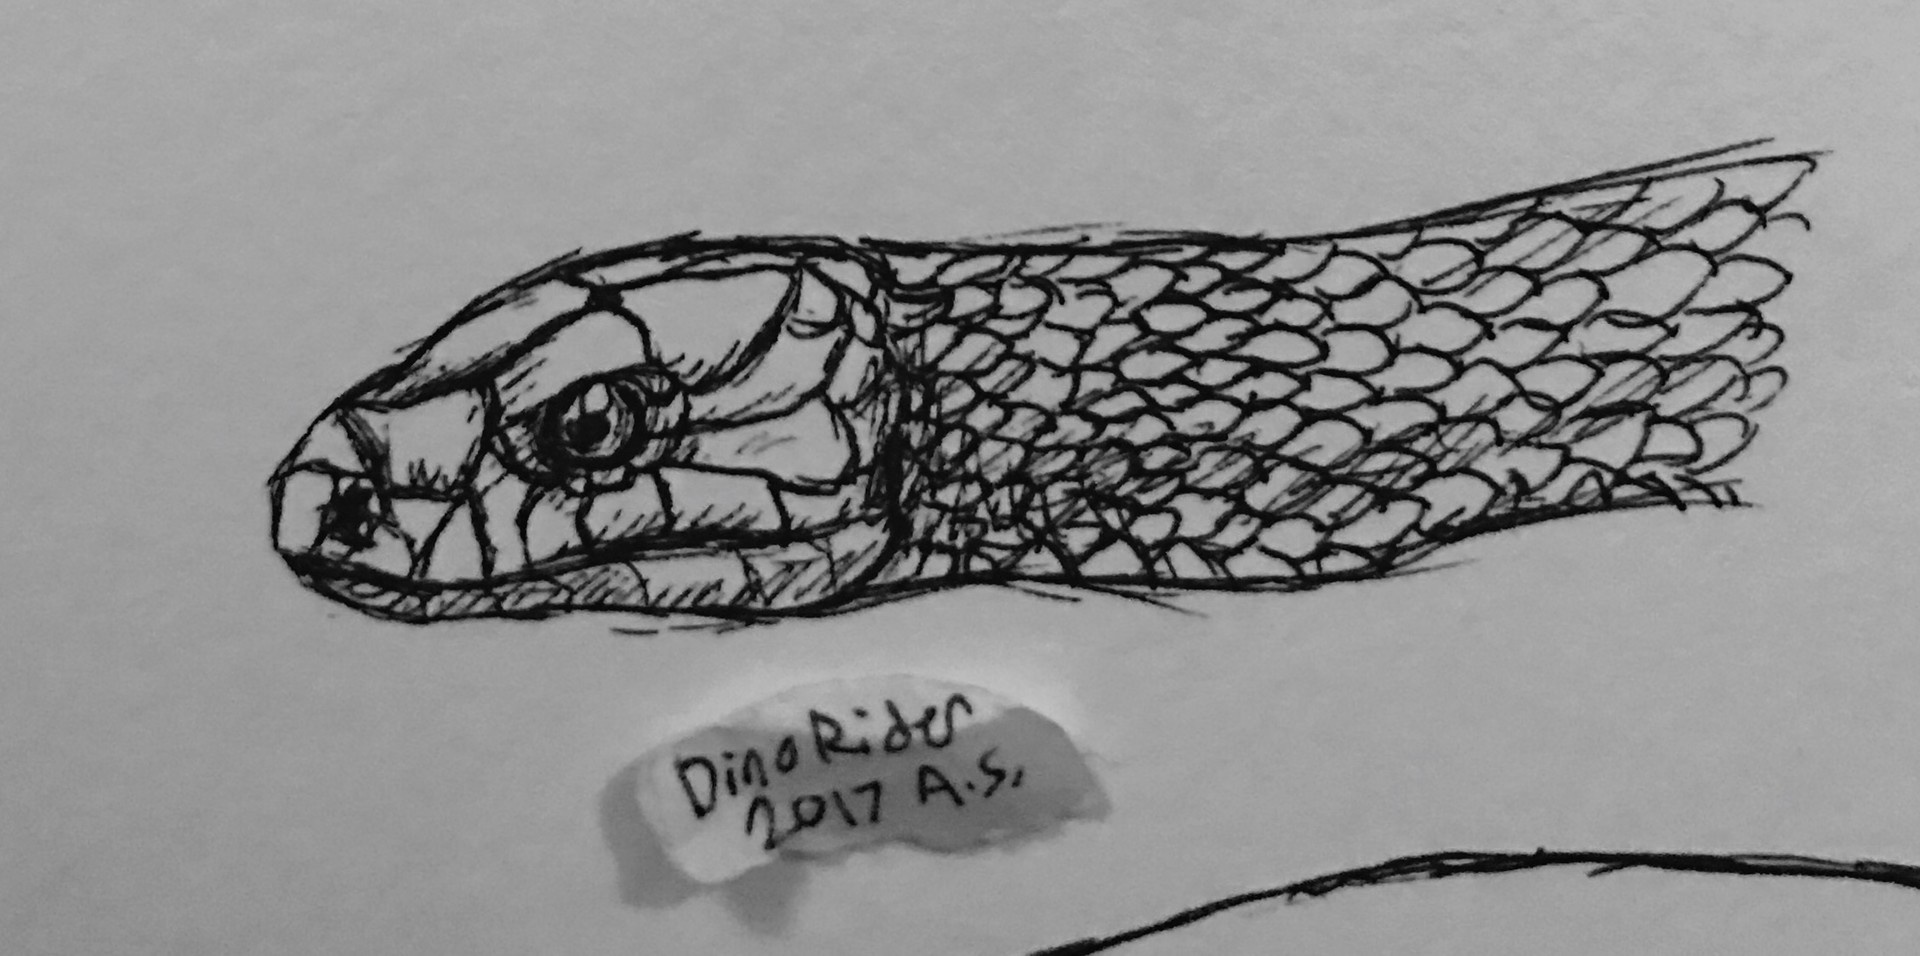 DinoRider
2017 A.S.